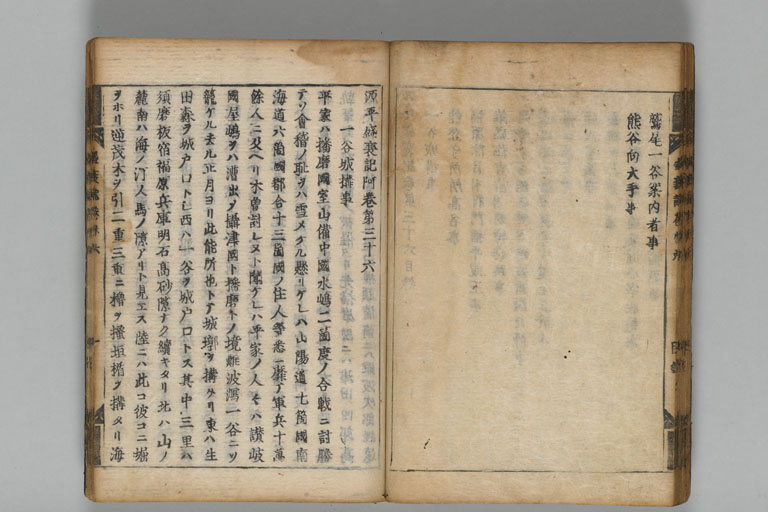 鷲尾一谷案内者事
熊谷向大手事
源平盛衰記阿巻第三十六
一谷城構事
平家ハ播磨國室山備中國水嶋二箇度ノ合戰ニ討勝
テソ會稽ノ恥ヲハ雪メケル懸リケレハ山陽道七箇國南
海道六箇國都合十三箇國ノ住人等悉ニ靡テ軍兵十萬
餘人ニ及ヘリ木曽討レヌト聞ケレハ平家ノ人々ハ讃岐
國屋嶋ヲハ漕出ヲ攝津國ト播磨トノ境難波潟一谷ニソ
籠ケル去ル正月ヨリ此能所也トテ城墎ヲ構ケリ東ハ生
田森ヲ城戸口トシ西ハ一谷ヲ城戸口トス其中三里ハ
須磨板宿福原兵庫明石高砂隙ナク續キタリ北ハ山ノ
麓南ハ海ノ汀人馬ノ隙アリト見エス陸ニハ此コ彼コニ堀
ヲホリ逆茂木ヲ引二重三重ニ櫓ヲ掻垣楯ヲ構タリ海